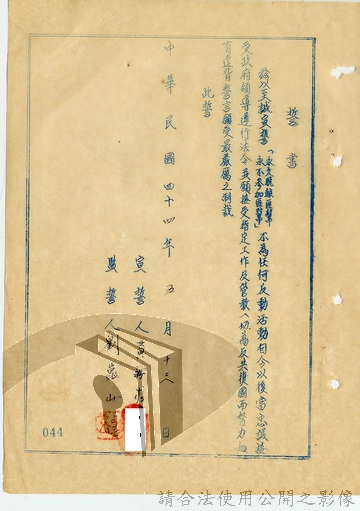 誓書
謹以至誠宣誓「永久脫離匪幫永不參加匪幫」不為任何反動活動自今以後當忠誠接
受政府領導遵行法令並願接受指定工作及管教一切為反共復國而努力如
有違背誓言願受最嚴厲之制裁
此誓
宣誓人
監誓人劉 山
中華民國四十四年五月十三日
044
請合法使用公開之影像